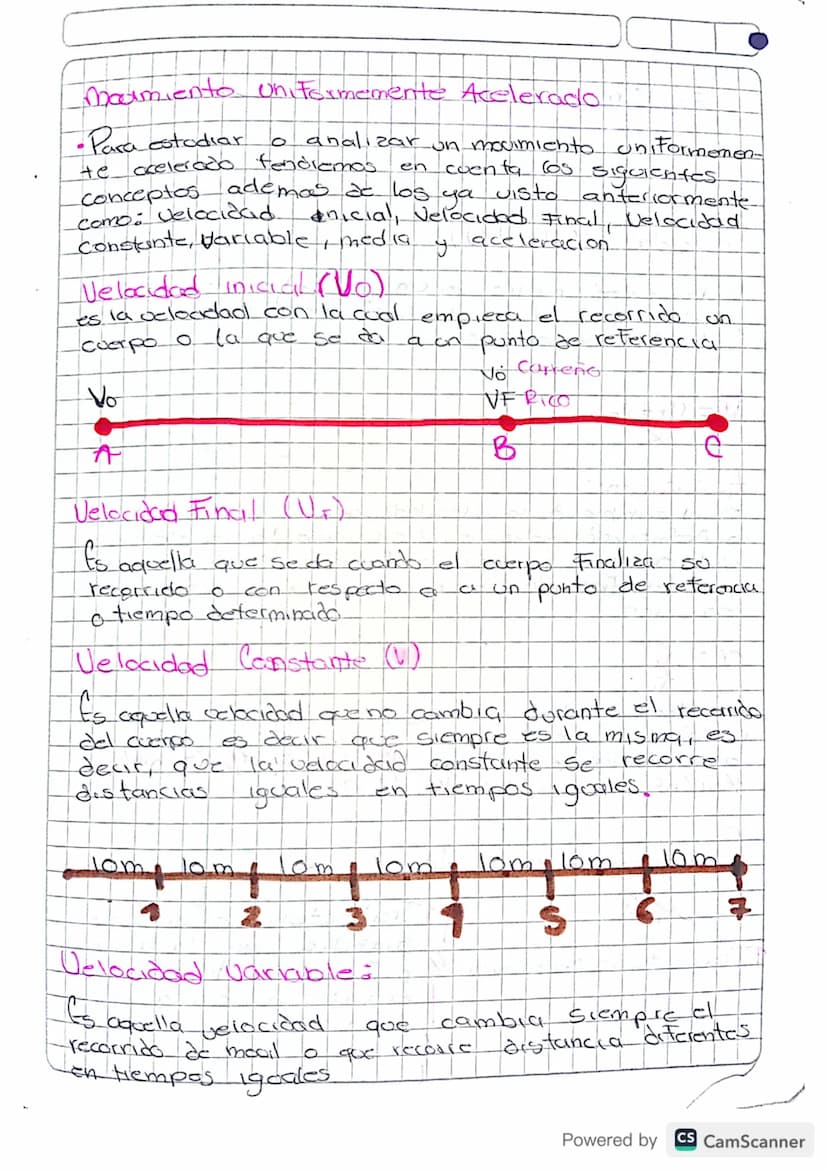 Movimiento Uniformemente Acelerado
• Para estudiar o analizar un movimiento uniformemen-
te acelerado tendremos en cuenta los siguientes
conceptos ademas de los ya visto anteriormente
como: velocidad inicial, velocidad Final, Velocidad
constante, Variable, media y aceleracion
Velocidad inicial (Vo)
es la velocidad con la cual empieza el recorrido un
cuerpo o la que se da a un punto de referencia
Vo Carreño
Vo VF Rico
A B C
Velocidad Final (VF)
Es aquella que se da cuando el cuerpo Finaliza su
recorrido o con respecto a a un punto de referencia
o tiempo determinado
Velocidad Constante (V)
Es aquella velocidad que no cambia durante el recorrido
del cuerpo es decir que siempre es la misma, es
decir, que la velocidad constante se recorre
distancias iguales en tiempos iguales.
10m 10m 10m 10m 10m 10m 10m
1 2 3 4 5 6 7
Velocidad variable:
Es aquella velocidad que cambia siempre el
recorrido de movil o que recorre distancia diferentes
en tiempos iguales
Powered by CS CamScanner